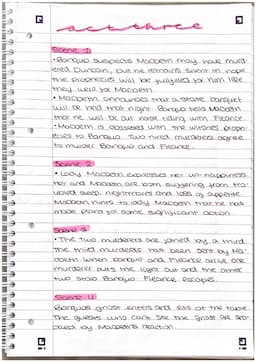 act three
Scene 1
• Banquo suspects Macbeth may have murd-
ered Duncan, but he remains silent in hope
the prophecies will be fulfilled for him like
they were for Macbeth.
• Macbeth announces that a state banquet
will be held that night. Banquo tells Macbeth
that he will be out horse riding with Fleance.
• Macbeth is obsessed with the witches proph-
ecies to Banquo. Two hired murderers agree
to murder Banquo and Fleance.
Scene 2
• Lady Macbeth expresses her un-happiness.
Her and Macbeth are both suffering from tro-
ubled sleep, nightmares and loss of appetite.
Macbeth hints to lady Macbeth that he has
made plans for some significant action.
Scene 3
• The two murderers are joined by a third.
The third murderer has been sent by Ma-
cbeth. When Banquo and Fleance arrive one
murderer puts the light out and the other
two stab Banquo. Fleance escapes.
Scene 4
Banquo's ghost enters and sits at the table.
The guests who can't see the ghost are sho-
cked by Macbeth's reaction.